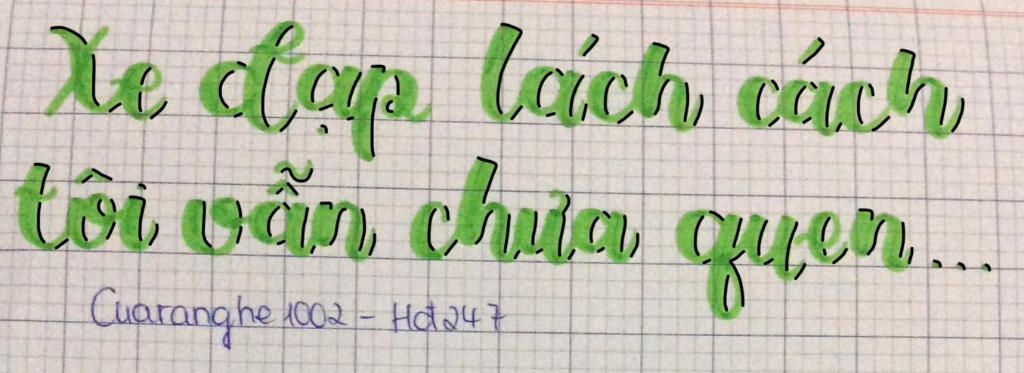 Xe đạp lách cách
tôi vẫn chưa quen...
Cuaranghe1002 - Hđ247